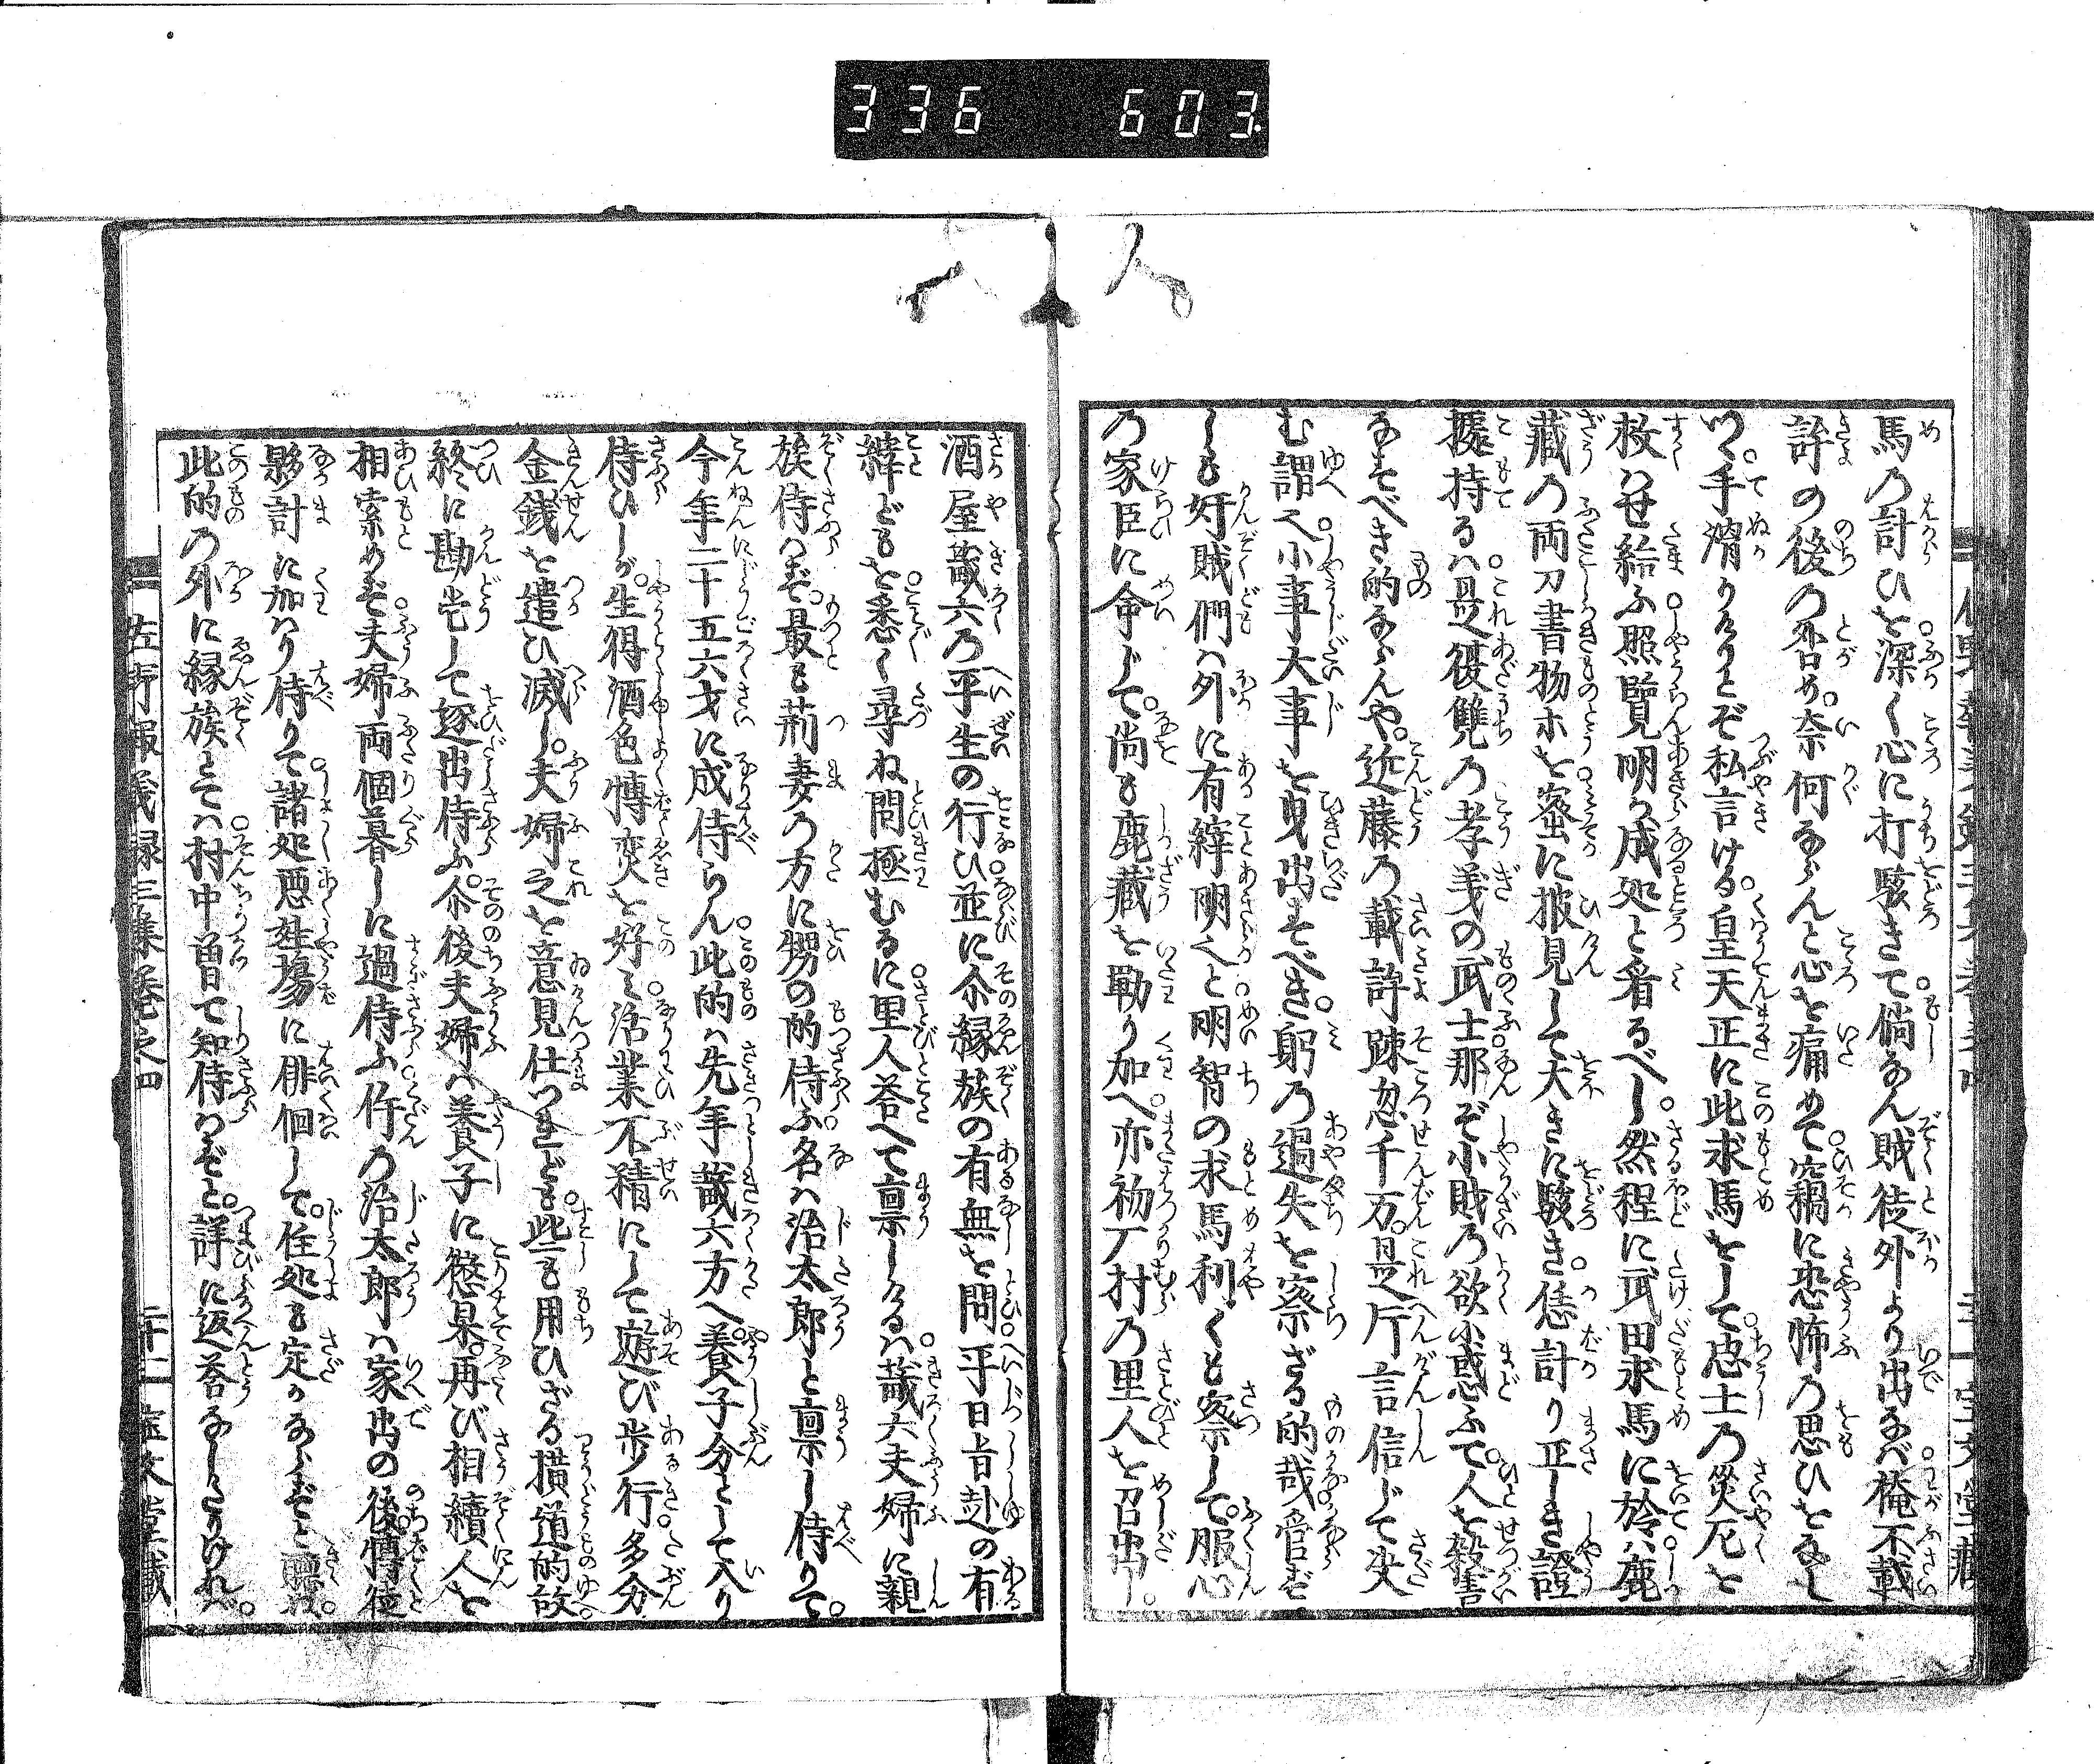 336 603
馬の計ひを深く心に打駭きて倘なん賊徒外より出なバ俺不載
許の後の咎め。奈何ならんと心を痛めて窃に恐怖の思ひをなし
つゝ。手滑りけりとぞ私言ける。皇天正に此求馬をして。忠士の災厄を
救ハせ給ふ照覽明か成処と看るべし。然程に武田求馬に於ハ鹿
藏の両刀書物ホを密に披見して大きに駭き恁計り正しき證
據持るハ是復讐の孝義の武士那ぞ小賊の欲小惑ふて。人を殺害
なすべき的ならんや。近藤の載許疎忽千万。是片言信じて決
む謂へ小事大事を曳出すべき。躬の過失を察ざる的哉。管ず
しも奸賊們ハ外に有縡明へと明智の求馬利くも察して。服心
の家臣に命じて。尚も鹿藏を勒り加へ。亦初丁村の里人を召出し。
酒屋藏六の平生の行ひ並に尒縁族の有無を問平日旨趣の有
縡どもを悉く尋ね問極むるに里人荅へて稟しけるハ藏六夫婦に親
族侍ハず。最も荊妻の方に甥の的侍ふ。名ハ治太郎と稟し侍りて。
今年二十五六才に成侍らん此的ハ先年藏六方へ養子分として入り
侍ひしが。生得酒色慱奕を好ミ活業不精にして遊び歩行多分
金銭を遣ひ滅し。夫婦之を意見仕つれども些も用ひざる横道的故。
終に勘当して逐出侍ふ。尒後夫婦ハ養子に懲果。再び相續人を
相索めず夫婦両個暮しに過侍ふ件の治太郎ハ家出の後慱徒
夥計に加ハり侍りて諸処悪姓塲に俳徊して。住処も定かならずと聽ぬ。
此的の外に縁族とてハ村中曽て知侍ハずと。詳に返荅なしたりけれバ。
佐野報義録三集巻之四 二十一 宝文堂藏